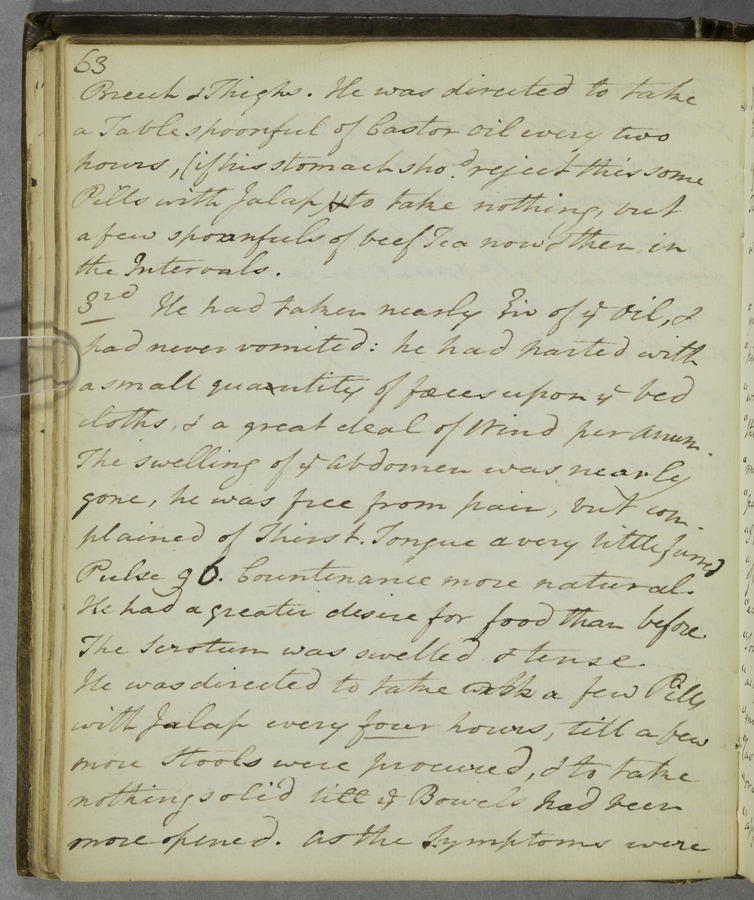 63
Breech & Thighs. He was directed to take
a Tablespoonful of Castor oil every two
hours, (if his stomach sho.d reject this some
Pills with Jalap) & to take nothing, but
a few spoonfuls of beef Tea now & then, in
the Intervals.
3rd He had taken nearly ℥iv of ye Oil, &
had never vomited: he had parted with
a small quantity of fæces upon ye bed
cloths, & a great deal of Wind per anum.
The swelling of ye abdomen was nearly
gone, he was free from pain, but com-
plained of Thirst. Tongue a very little furred
Pulse 96. Countenance more natural.
He had a greater desire for food than before.
The Scrotum was swelled & tense.
He was directed to take a few Pills
with Jalap every four hours, till a few
more Stools were procured, & to take
nothing solid till ye Bowels had been
more opened. As the Symptoms were